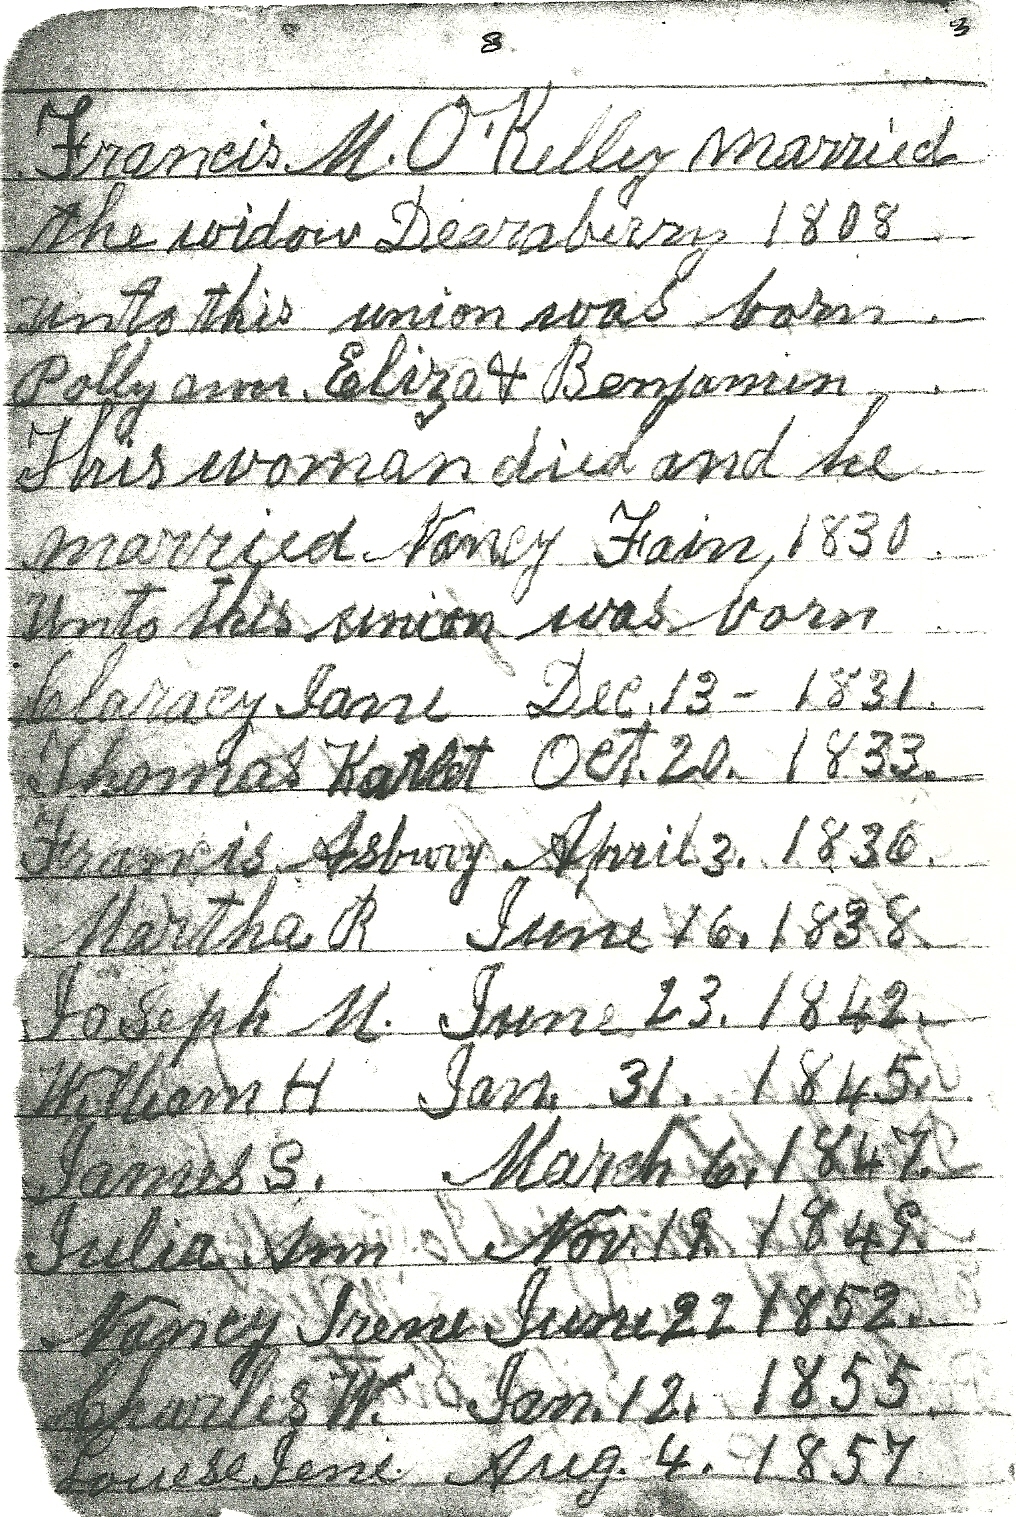 8 3
Francis M. O'Kelley married
the widow Dearaberry 1808
unto this union was born
Polly ann. Eliza & Benjamin
This woman died and he
married Nancy Fain, 1830
Unto this union was born
Claracy Jane Dec. 13 - 1831.
Thomas Oct. 20. 1833.
Francis Asbury April 3. 1836.
Martha R June 16. 1838.
Joseph M. June 23. 1842.
William H Jan. 31. 1845.
James S. March 6. 1847.
Julia Ann Nov. 19. 1849.
Nancy Irene June 22 1852.
Charles W. Jan. 12. 1855
Louese Jene. Aug. 4. 1857